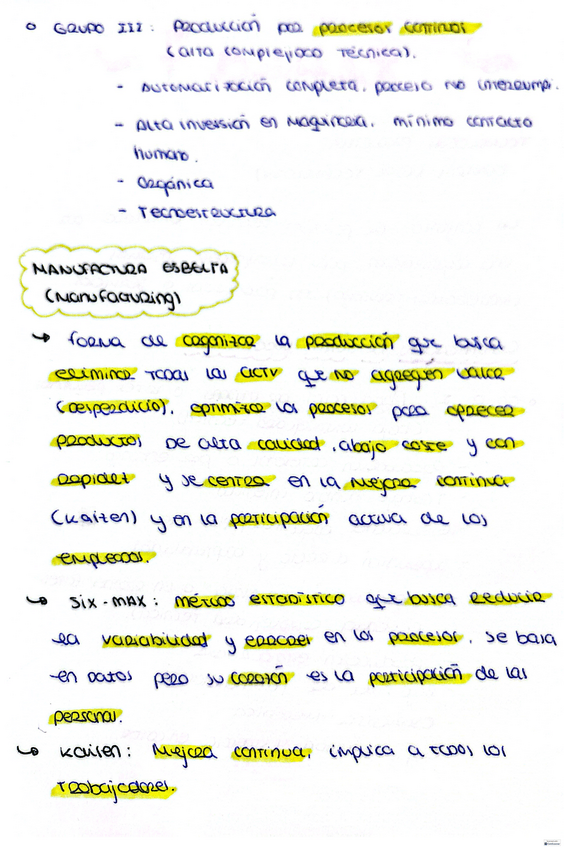 ○ GRUPO III: PRODUCCIÓN POR PROCESOS CONTINUOS
(alta complejidad técnica).
- Automatización completa, proceso no interrumpi.
- Alta inversión en maquinaria, mínimo contacto
humano.
- Orgánica
- Tecnoestructura
MANUFACTURA ESBELTA
(Manufacturing)
↳ forma de organizar la producción que busca
eliminar todas las activ que no agreguen valor
(desperdicio), optimizar los procesos para ofrecer
productos de alta calidad, a bajo coste y con
rapidez y se centra en la mejora continua
(kaizen) y en la participación activa de los
empleados.
↳ SIX-MAX: método estadístico que busca reducir
la variabilidad y errores en los procesos. Se basa
en datos pero su corazón es la participación de las
personas.
↳ Kaisen: Mejora continua, implica a todos los
trabajadores.